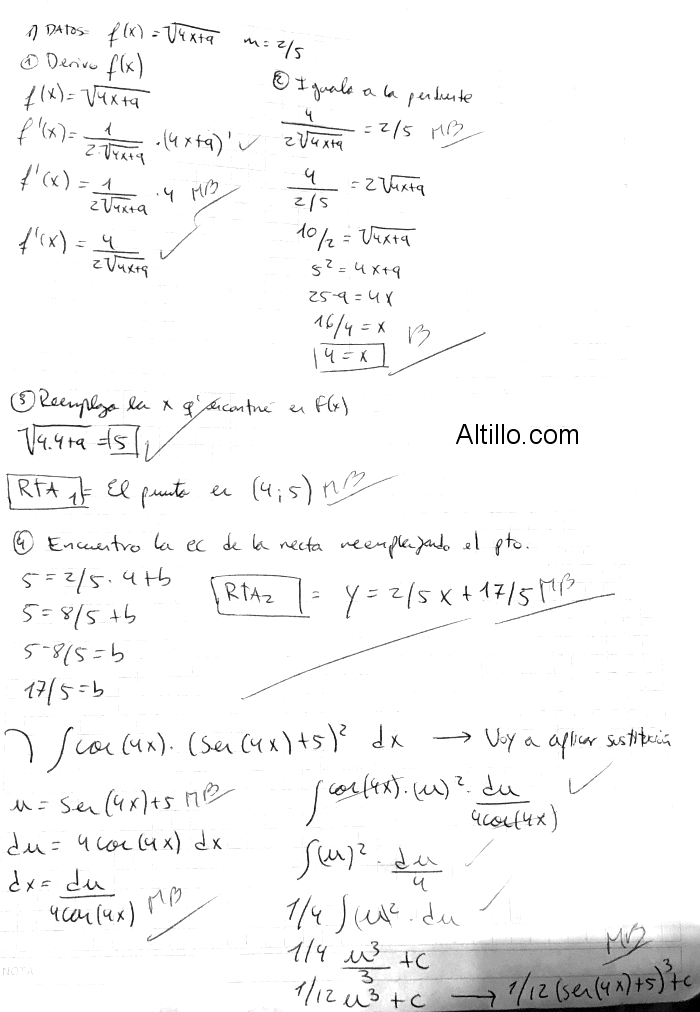 1) DATOS: f(x) = √4x+9   m = 2/5
① Derivo f(x)
f(x) = √4x+9
f'(x) = 1/2·√4x+9 · (4x+9)'
f'(x) = 1/2√4x+9 · 4 MB
f'(x) = 4/2√4x+9
② Igualo a la pendiente
4/2√4x+9 = 2/5 MB
4/2/5 = 2√4x+9
10/2 = √4x+9
5² = 4x+9
25-9 = 4x
16/4 = x B
4 = x
③ Reemplazo la x q' encontré en f(x)
√4.4+9 = 5
Altillo.com
RTA 1) = El punto es (4;5) MB
④ Encuentro la ec de la recta reemplazando el pto.
5 = 2/5 · 4 + b
5 = 8/5 + b
5-8/5 = b
17/5 = b
RTA2 = y = 2/5 x + 17/5 MB
∫ cos(4x) · (sen(4x)+5)² dx → Voy a aplicar sustitución
u = sen(4x)+5 MB
du = 4cos(4x) dx
dx = du/4cos(4x) MB
∫ cos(4x) · (u)² · du/4cos(4x)
∫ (u)² · du/4
1/4 ∫ (u)² · du
1/4 u³/3 + c
MB
1/12 u³ + c → 1/12 (sen(4x)+5)³ + c
NOTA